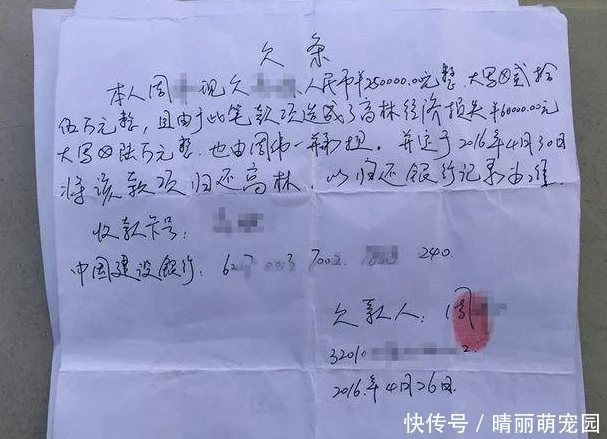 欠条
本人周 现欠 人民币￥250000.00元整 大写贰拾
伍万元整，且由于此笔款项造成了高林经济损失￥60000.00元
大写陆万元整 也由周 一并承担。并定于2016年4月30日
将该款项归还高林，以归还银行记录为准
收款卡号：
中国建设银行：627 003 7002 240
欠款人：周
3201 2
2016年4月26日
快传号／晴丽萌宠园